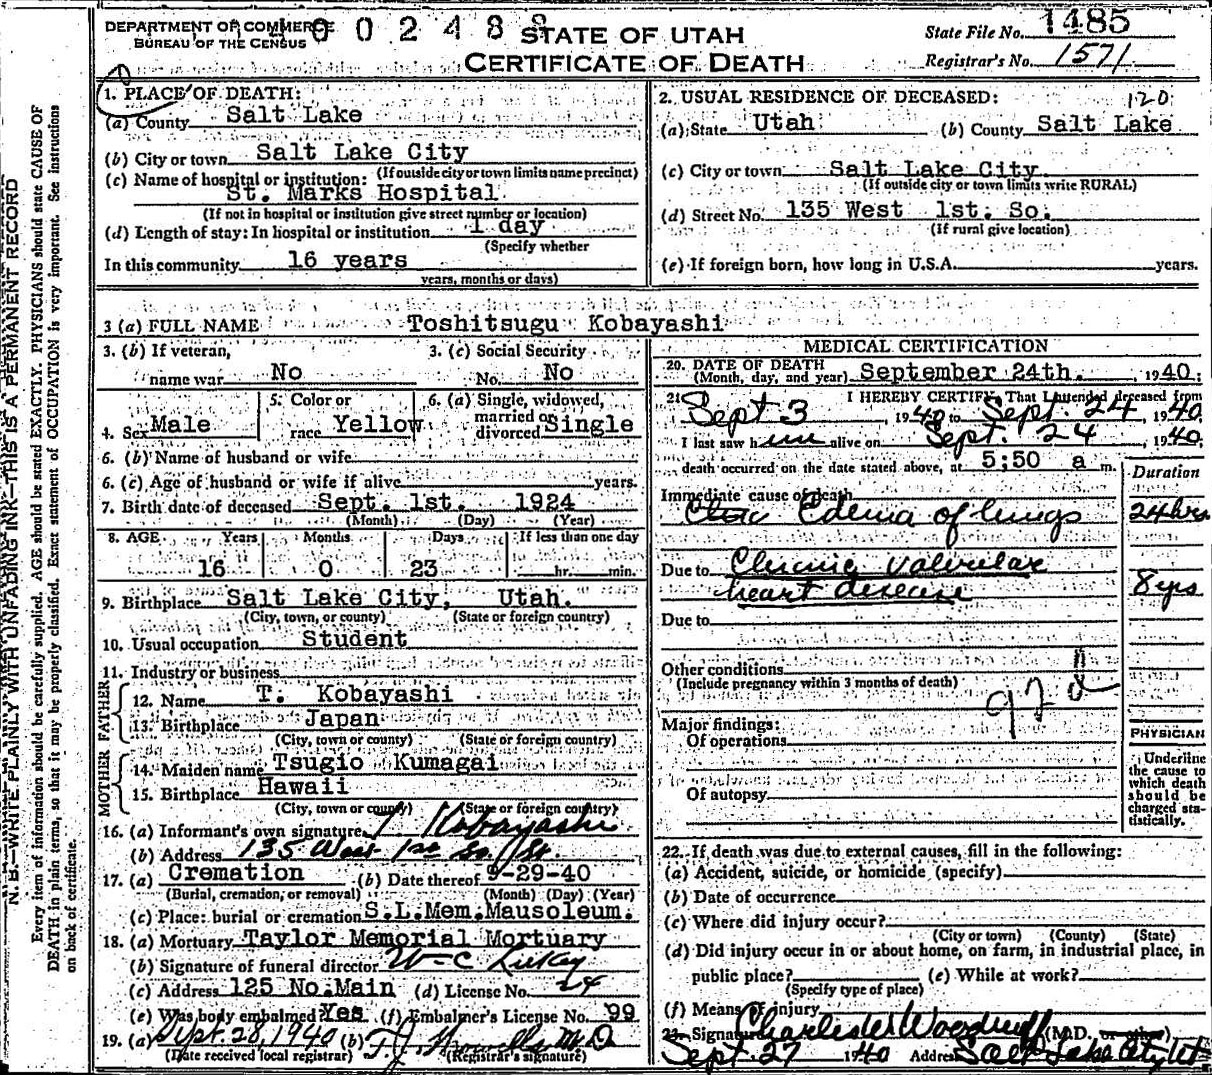 DEPARTMENT OF COMMERCE
BUREAU OF THE CENSUS
0 0 2 4 8 8
STATE OF UTAH
CERTIFICATE OF DEATH
State File No. 1485
Registrar's No. 1571
1. PLACE OF DEATH:
(a) County Salt Lake
(b) City or town Salt Lake City
(If outside city or town limits name precinct)
(c) Name of hospital or institution:
St. Marks Hospital
(If not in hospital or institution give street number or location)
(d) Length of stay: In hospital or institution 1 day
(Specify whether
In this community 16 years
years, months or days)
2. USUAL RESIDENCE OF DECEASED: 120
(a) State Utah (b) County Salt Lake
(c) City or town Salt Lake City
(If outside city or town limits write RURAL)
(d) Street No. 135 West 1st. So.
(If rural give location)
(e) If foreign born, how long in U.S.A. years.
3 (a) FULL NAME Toshitsugu Kobayashi
3. (b) If veteran, name war No
3. (c) Social Security No. No
4. Sex Male
5. Color or race Yellow
6. (a) Single, widowed, married or divorced Single
6. (b) Name of husband or wife
6. (c) Age of husband or wife if alive years.
7. Birth date of deceased Sept. 1st. 1924
(Month) (Day) (Year)
8. AGE Years Months Days If less than one day
16 0 23 hr. min.
9. Birthplace Salt Lake City, Utah.
(City, town, or county) (State or foreign country)
10. Usual occupation Student
11. Industry or business
FATHER
12. Name T. Kobayashi
13. Birthplace Japan
(City, town or county) (State or foreign country)
MOTHER
14. Maiden name Tsugio Kumagai
15. Birthplace Hawaii
(City, town or county) (State or foreign country)
16. (a) Informant's own signature T Kobayashi
(b) Address 135 West 1st So. St.
17. (a) Cremation (b) Date thereof 9-29-40
(Burial, cremation, or removal) (Month) (Day) (Year)
(c) Place: burial or cremation S.L.Mem.Mausoleum.
18. (a) Mortuary Taylor Memorial Mortuary
(b) Signature of funeral director
(c) Address 125 No.Main (d) License No. 24
(e) Was body embalmed? Yes (f) Embalmer's License No. 99
19. (a) Sept. 28, 1940 (b) T. J. Howells M.D
(Date received local registrar) (Registrar's signature)
MEDICAL CERTIFICATION
20. DATE OF DEATH
(Month, day, and year) September 24th. , 1940.
21. I HEREBY CERTIFY, That I attended deceased from
Sept 3, 1940 to Sept. 24 1940.
I last saw him alive on Sept. 24, 1940,
death occurred on the date stated above, at 5:50 a m.
Duration
Immediate cause of death
Edema of lungs 24 hrs
Due to Chronic valvular
heart disease 8 yrs
Due to
Other conditions
(Include pregnancy within 3 months of death)
92 d
Major findings:
Of operations
Of autopsy
PHYSICIAN
Underline
the cause to
which death
should be
charged sta-
tistically.
22. If death was due to external causes, fill in the following:
(a) Accident, suicide, or homicide (specify)
(b) Date of occurrence
(c) Where did injury occur?
(City or town) (County) (State)
(d) Did injury occur in or about home, on farm, in industrial place, in
public place? (e) While at work?
(Specify type of place)
(f) Means of injury
Signature Charles W Woodruff (M.D. or other)
Sept 27 1940 Address Salt Lake City Ut
N. B.—WRITE PLAINLY WITH UNFADING INK—THIS IS A PERMANENT RECORD
Every item of information should be carefully supplied. AGE should be stated EXACTLY. PHYSICIANS should state CAUSE OF
DEATH in plain terms, so that it may be properly classified. Exact statement of OCCUPATION is very important. See instructions
on back of certificate.